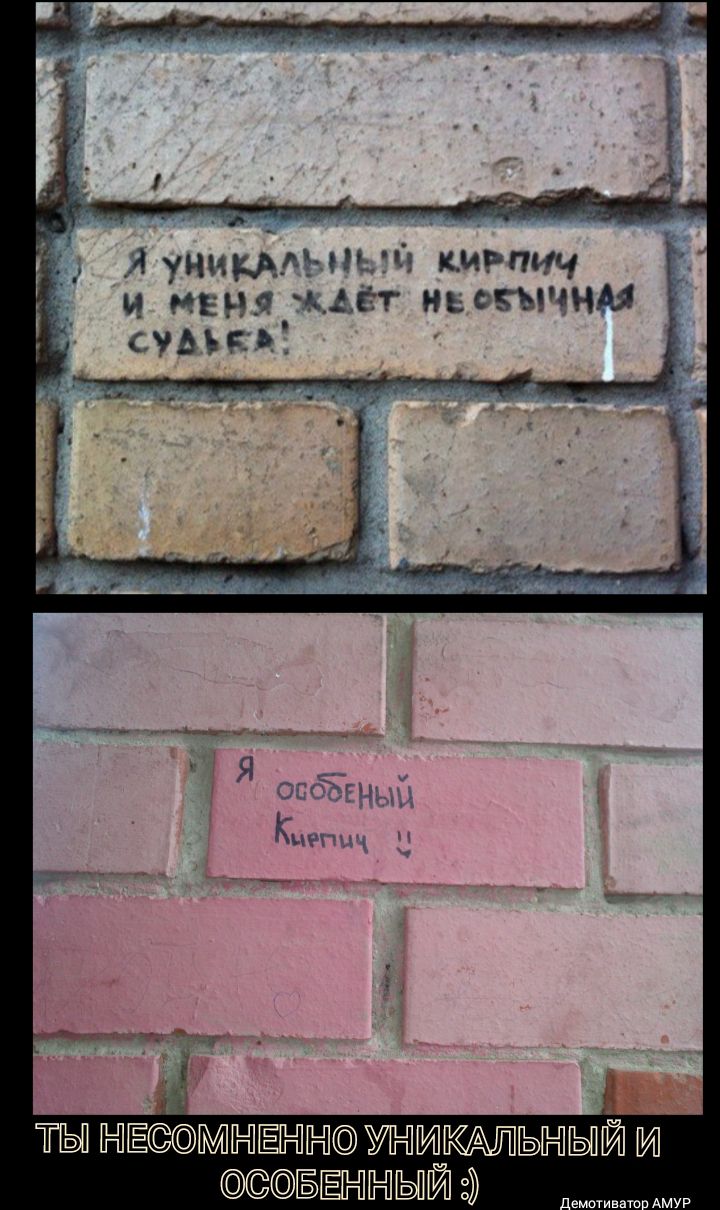 Я УНИКАЛЬНЫЙ КИРПИЧ
И МЕНЯ ЖДЁТ НЕОБЫЧНАЯ
СУДЬБА!
Я
ОСОБЕНЫЙ
Кирпич !!
ТЫ НЕСОМНЕННО УНИКАЛЬНЫЙ И
ОСОБЕННЫЙ :)
Демотиватор АМУР